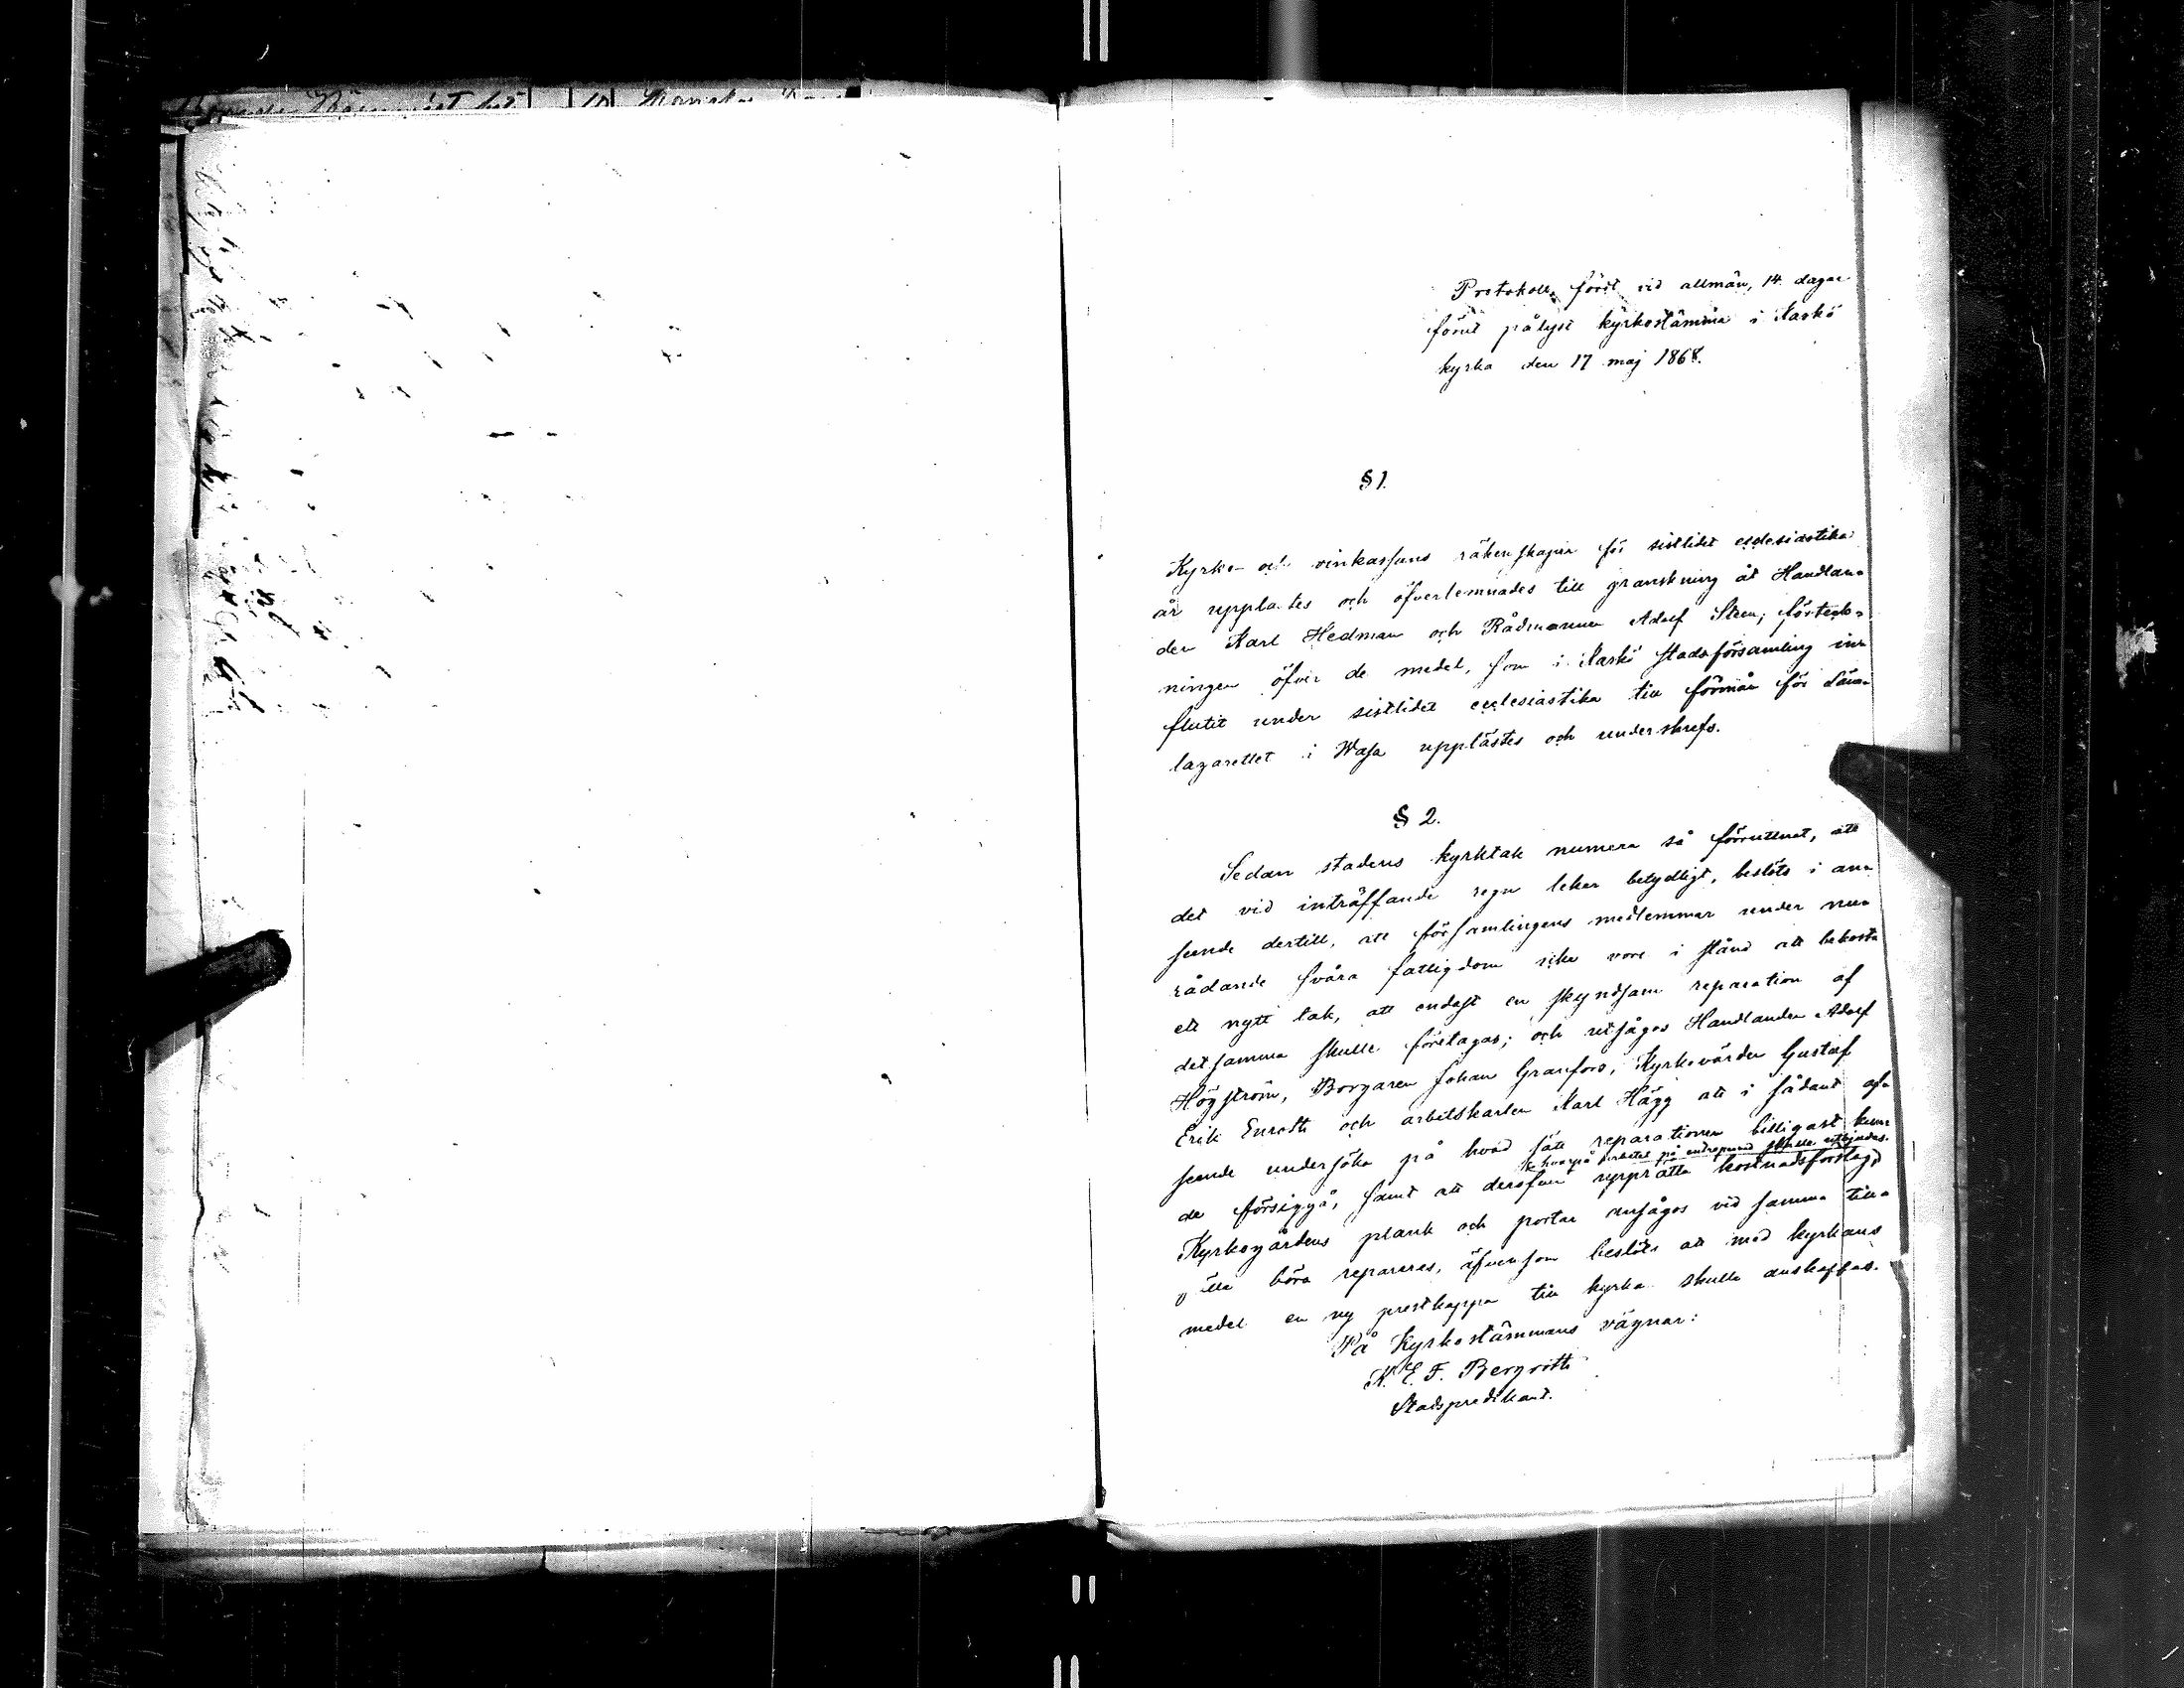 Protokoll, fördt vid allmän, 14 dagar
förut pålyst kyrkostämma i Kaskö
kyrka den 17 maj 1868.
§ 1.
Kyrko- och vinkassans räkenskaper för sistlidet ecclesiastika
år upplästes och öfverlemnades till granskning åt Handlan-
den Karl Hedman och Rådmannen Adolf Sten; förteck-
ningen öfver de medel, som i Kaskö stadsförsamling in-
flutit under sistlidet ecclesiastika till förmån för Läns-
lazarettet i Wasa upplästes och underskrefs.
§ 2.
Sedan stadens kyrktak numera så förruttnat, att
det vid inträffande regn leker betydligt, beslöts i an-
seende dertill, att församlingens medlemmar under nu-
rådande svåra fattigdom icke vore i stånd att bekosta
ett nytt tak, att endast en skyndsam reparation af
detsamma skulle företagas; och utsågos Handlanden Adolf
Högström, Borgaren Johan Granfors, Kyrkovärden Gustaf
Erik Enroth och arbetskarlen Karl Hägg att i sådant af-
seende undersöka på hvad sätt reparationen billigast kun-
& hvarpå arbetet på entreprenad skulle utbjudas.
de försiggå, samt att deröfver upprätta kostnadsförslag,
Kyrkogårdens plank och portar ansågos vid samma till-
fälle böra repareras, äfvensom beslöts att med kyrkans
medel en ny prestkappa till kyrka skulle anskaffas.
På Kyrkostämmans vägnar:
K. E. F. Bergroth
Stadspredikant.